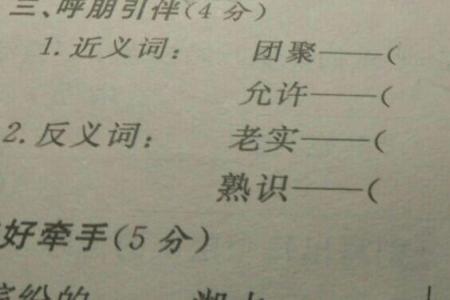 三、呼朋引伴(4分)
1.近义词： 团聚——(
允许——(
2.反义词： 老实——(
熟识——(
好牵手(5分)
纷的